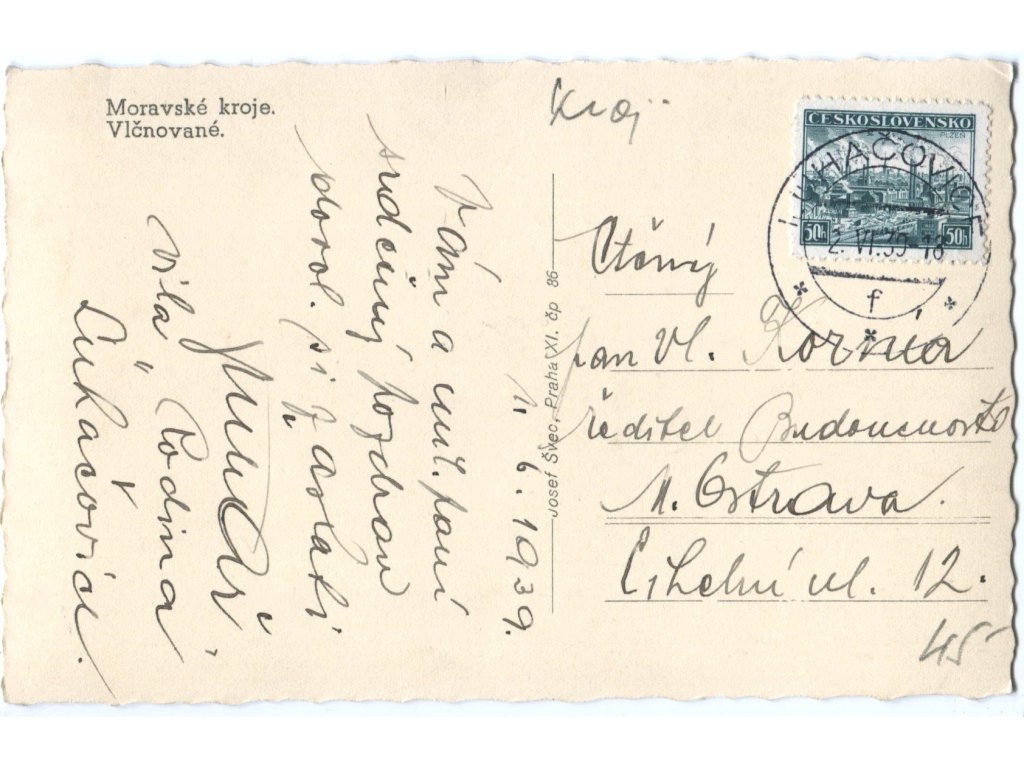 Moravské kroje.
Vlčnované.
kroj
ČESKOSLOVENSKO
PLZEŇ
50h 50h
LUHAČOVICE
2. VI. 39-18
f
Josef Švec, Praha XI. čp 86
1. 6. 1939.
Vám a mil. paní
srdečný pozdrav
dovol. si zaslati
vila „Rodina"
Luhačovice.
Ctěný
pan Vl.
ředitel Budoucnosti
M. Ostrava.
Cihelní ul. 12.
45